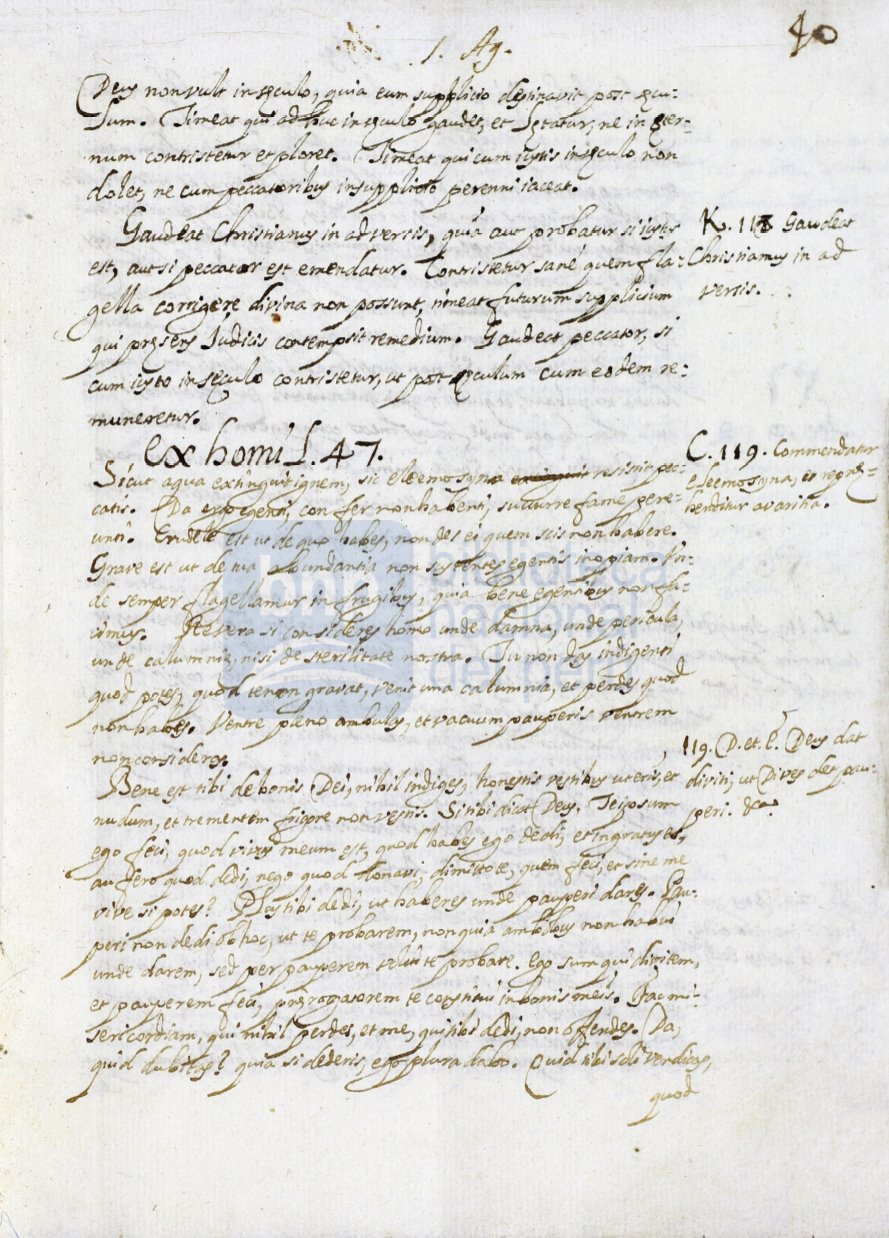 1. Ag.
40
Deus non vult in sęculo, quia eum supplicio destinavit post sęcu-
lum. Timeat qui adhuc in sęculo gaudet, et lętatur, ne in ęter-
num contristetur et ploret. Timeat qui cum iustis in sęculo non
dolet, ne cum peccatoribus in supplicio perenni iaceat.
Gaudeat Christianus in adversis, quia aut probatur si iustus
est, aut si peccator est emendatur. Contristetur sané quem fla-
gella corrigere divina non possunt, timeat futurum supplicium
qui pręsens Iudicis contempsit remedium. Gaudeat peccator, si
cum iusto in sęculo contristetur, ut post sęculum cum eodem re-
muneretur.
K. 118 Gaudeat
Christianus in ad
versis.
Ex homil. 47.
Sicut aqua extinguit ignem, sic eleemosyna extinguit resistit pec-
catis. Da ergo egenti, confer non habenti, succurre fame pere-
unti. Crudele est ut de quo habes, non des ei quem scis non habere.
Grave est ut de tua abundantia non sustentes egentis inopiam. In-
de semper flagellamur in frugibus, quia bene egentibus non fa-
cimus. Revera si consideres homo unde damna, unde pericula,
unde calumnię, nisi de sterilitate nostra. Tu non das indigenti
quod potes, quod te non gravat, venit una calumnia, et perdes quod
non habes. Ventre pleno ambulas, et vacuum pauperis ventrem
non consideras.
C. 119. Commendatur
eleemosyna, et reprę-
henditur avaritia.
Bene est tibi de bonis Dei, nihil indiges, honestis vestibus uteris, et
nudum, et trementem frigore non vestis. Si tibi dicat Deus, Teipsum
ego feci, quod vivis meum est, quod habes ego dedi, et ingratus es,
aufero quod dedi, nego quod donavi, dimitto te, quem feci, et sine me
vive si potes? Hos tibi dedi, ut haberes unde pauperi dares. Pau-
peri non dedi ob hoc, ut te probarem, non quia ambobus non habui
unde darem, sed per pauperem volui te probare. Ego sum qui divitem,
et pauperem feci, prærogatorem te constitui in bonis meis. Fac mi-
sericordiam, qui nihil perdes, et me, qui tibi dedi, non offendes. Da,
quid dubitas? quia si dederis, ego plura dabo. Quid tibi soli
quod
119. D. et E. Deus dat
diviti, ut Dives det pau-
peri. &c.
biblioteca
nacional
del perú